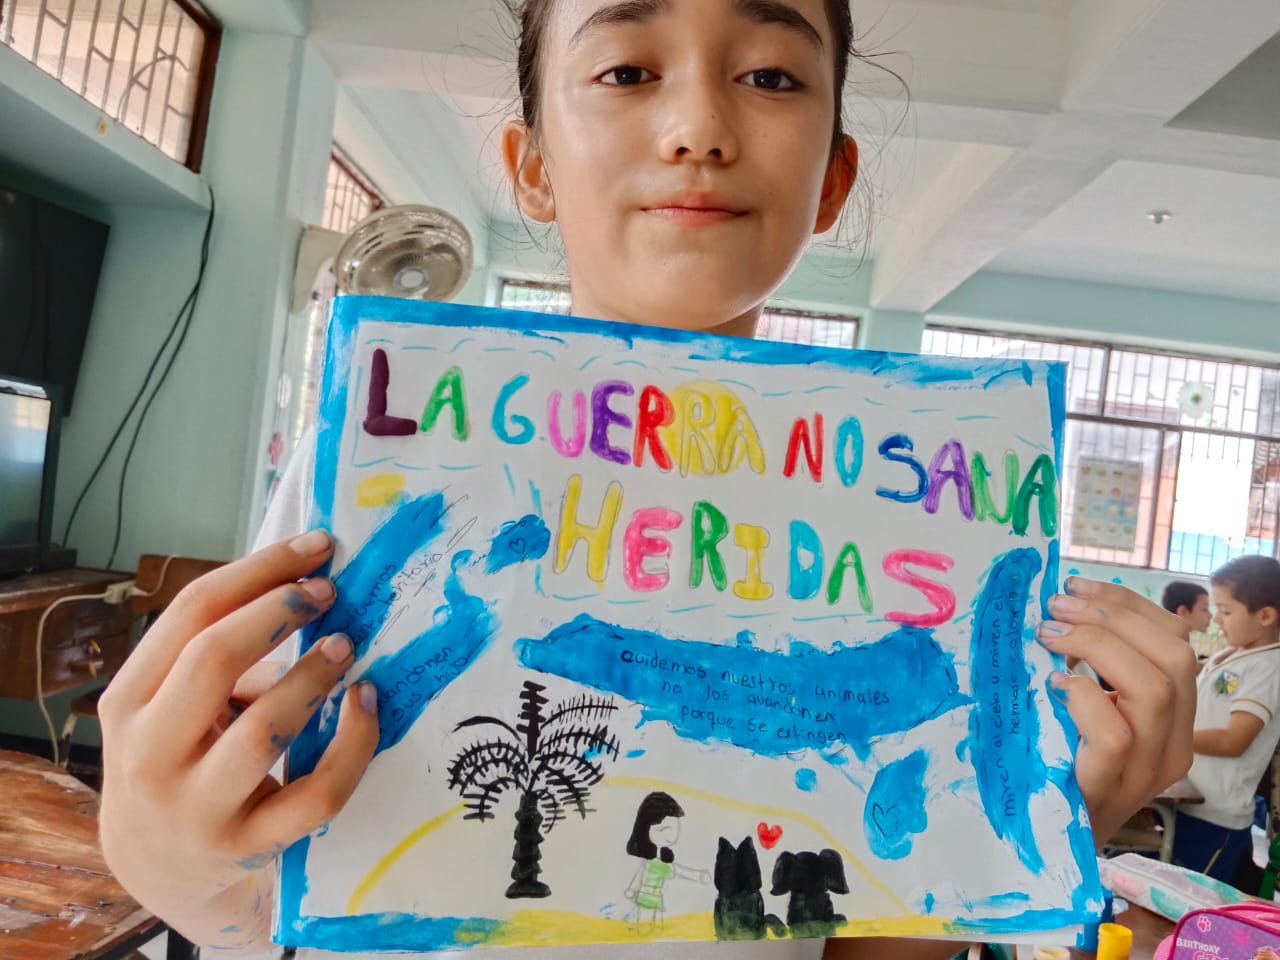 LA GUERRA NO SANA
HERIDAS
territorio
sus hijo
cuidemos nuestros animales
no los avandonen
porque se extingen
miren al cielo y miren el
hermoso color
BIRTHDAY